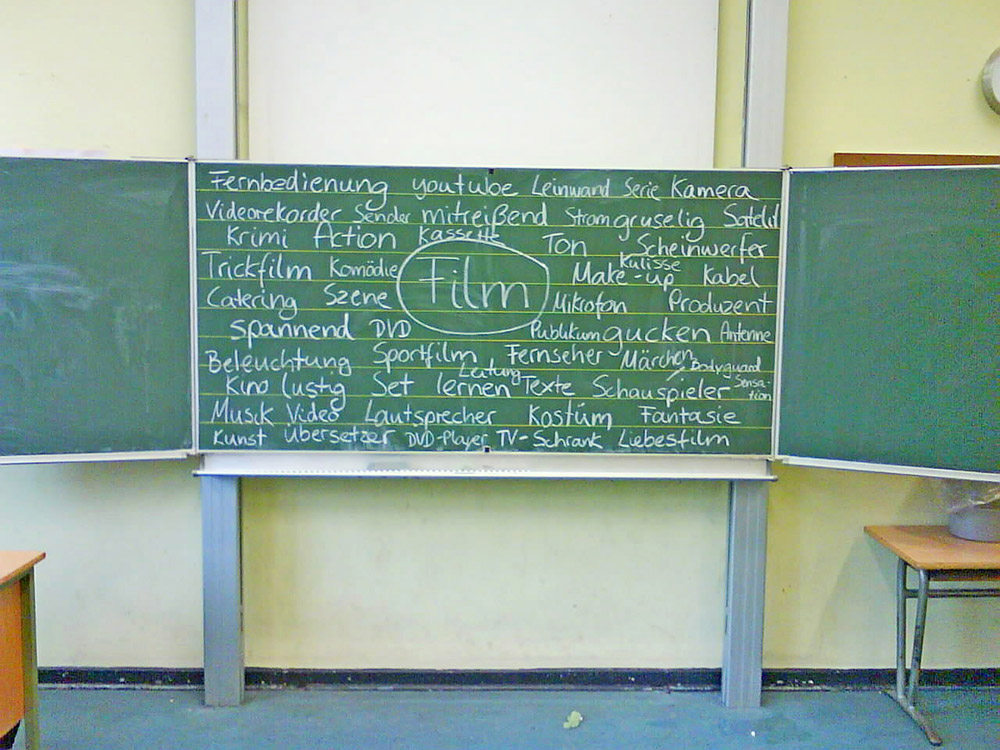 Fernbedienung youtube Leinwand Serie Kamera
Videorekorder Sender mitreißend Strom gruselig Satelit
Krimi Action Kassette Ton Scheinwerfer
Kulisse
Trickfilm Komödie Film Make-up Kabel
Catering Szene Mikrofon Produzent
spannend DVD Publikum gucken Antenne
Beleuchtung Sportfilm Fernseher Märchen Bodyguard
Leitung
Kino lustig Set lernen Texte Schauspieler Sensa-
tion
Musik Video Lautsprecher Kostüm Fantasie
Kunst Übersetzer DVD-Player TV-Schrank Liebesfilm